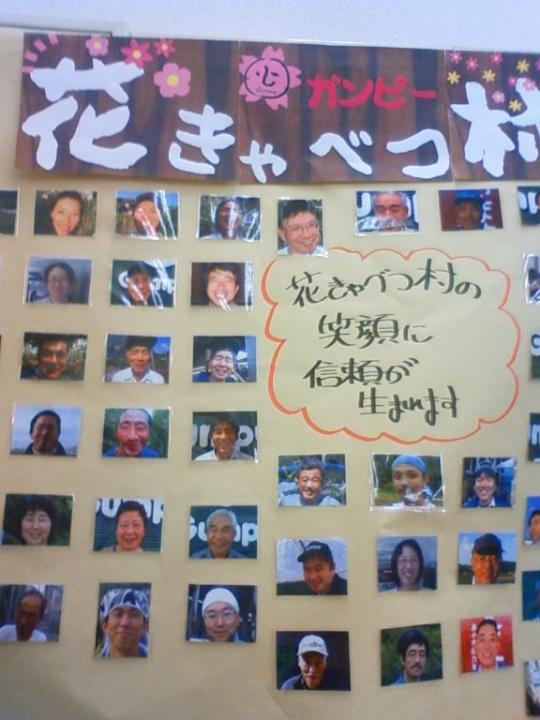 花きゃべつ村
ガンピー
花きゃべつ村の
笑顔に
信頼が
生まれます